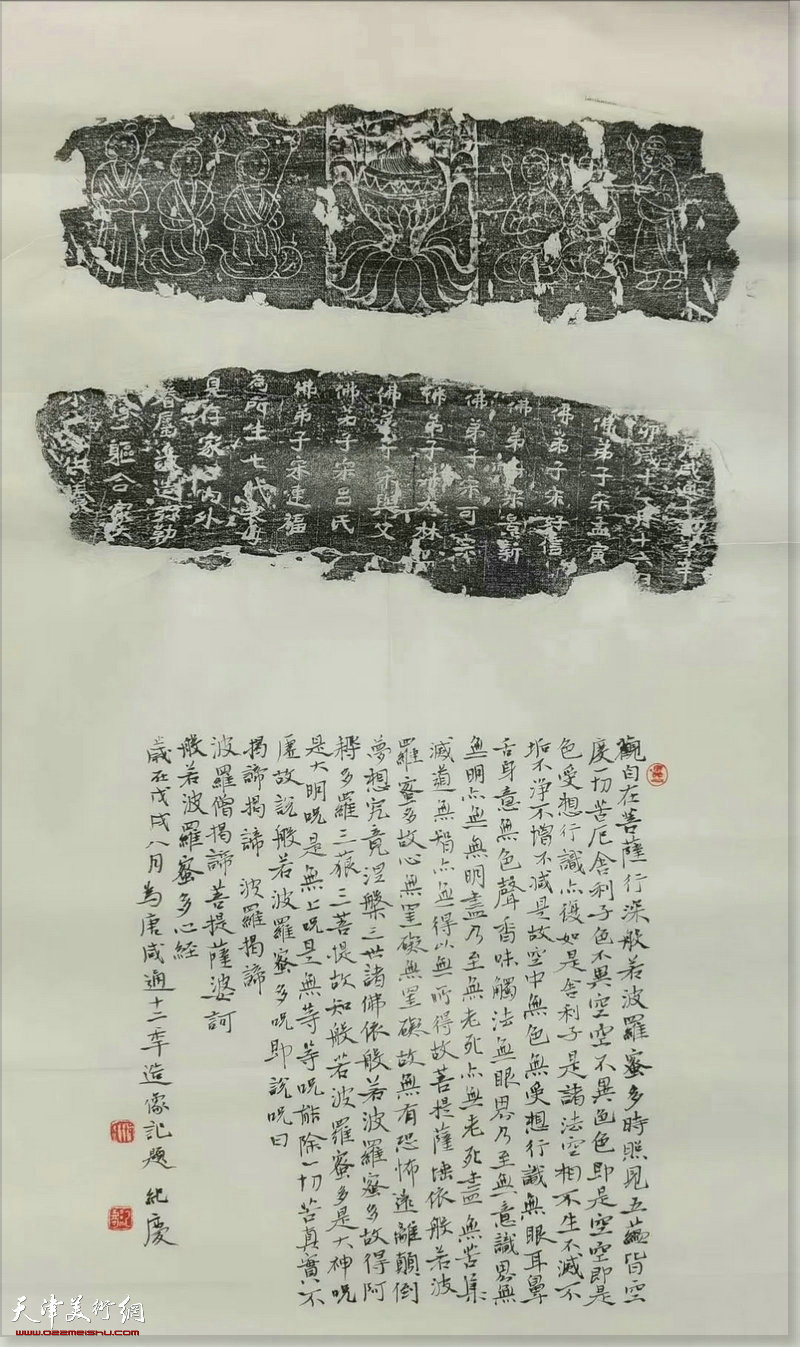 卯歲十月十六日
佛弟子宋孟寅
佛弟子宋信
佛弟子宋景新
佛弟子宋可崇
佛弟子宋林
佛弟子宋興父
佛弟子宋呂氏
佛弟子宋連福
為所生七代父母
見存家口內外
眷屬造弥勒
軀合家
小供養
觀自在菩薩行深般若波羅蜜多時照見五蘊皆空
度一切苦厄舍利子色不異空空不異色色即是空空即是
色受想行識亦復如是舍利子是諸法空相不生不滅不
垢不淨不增不減是故空中無色無受想行識無眼耳鼻
舌身意無色聲香味觸法無眼界乃至無意識界無
無明亦無無明盡乃至無老死亦無老死盡無苦集
滅道無智亦無得以無所得故菩提薩埵依般若波
羅蜜多故心無罣礙無罣礙故無有恐怖遠離顛倒
夢想究竟涅槃三世諸佛依般若波羅蜜多故得阿
耨多羅三藐三菩提故知般若波羅蜜多是大神咒
是大明咒是無上咒是無等等咒能除一切苦真實不
虛故說般若波羅蜜多咒即說咒曰
揭諦揭諦 波羅揭諦
波羅僧揭諦菩提薩婆訶
般若波羅蜜多心經
歲在戊戌八月為唐咸通十二年造像記題 紀慶
天津美術網
www.022meishu.com